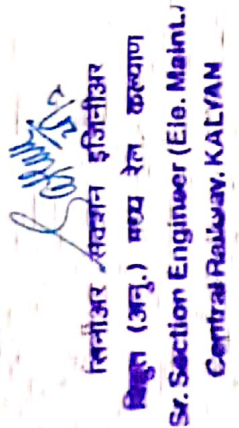 सिनीअर सेक्शन इंजिनीअर
विद्युत (अनु.) मध्य रेल, कल्याण
Sr. Section Engineer (Ele. Maint.)
Central Railway, KALYAN